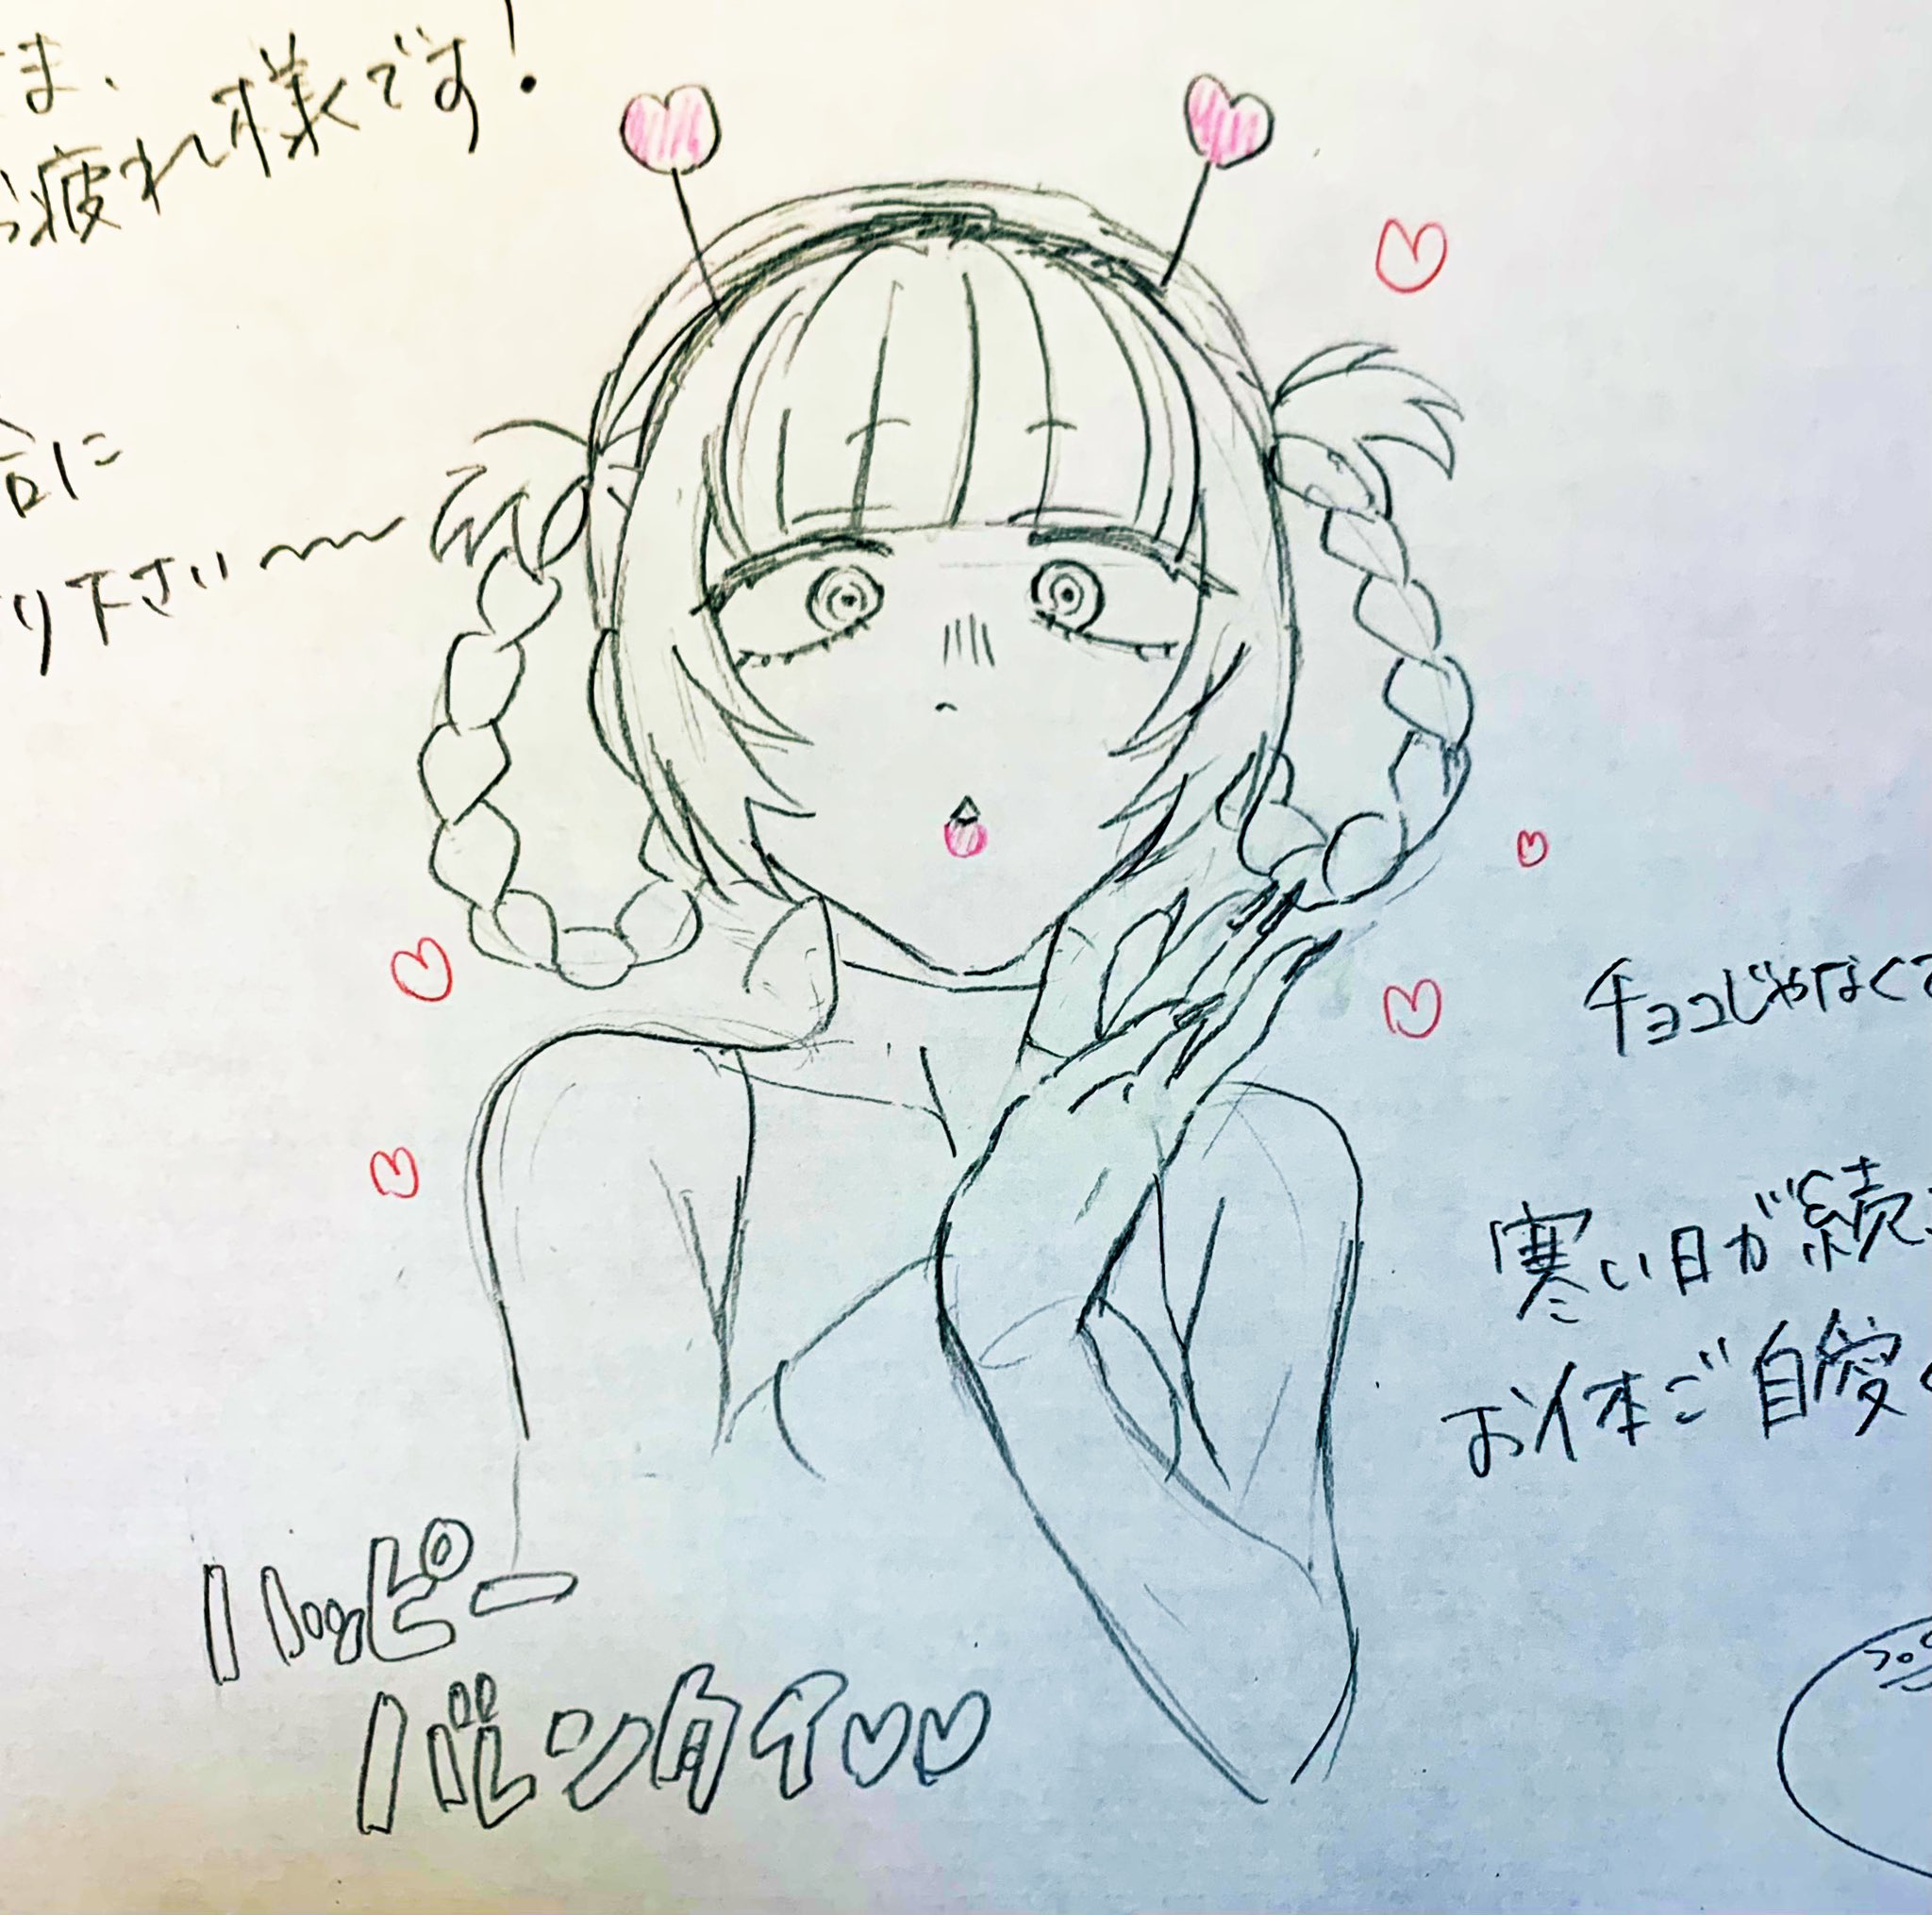 ま、
お疲れ様です!
合に
り下さい〜
チョコじゃなくて
寒い日が続
お体ご自愛く
ハッピー
バレンタイ♡♡